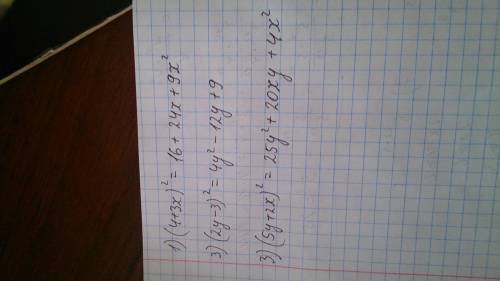 1) (4+3x)² = 16 + 24x + 9x²
3) (2y-3)² = 4y² - 12y + 9
3) (5y+2x)² = 25y² + 20xy + 4x²